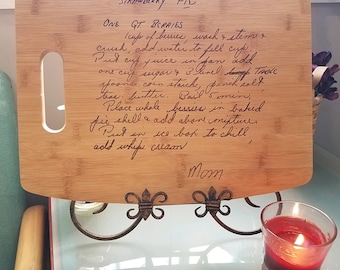 STRAWBERRY PIE
ONE QT BERRIES
1 cup of berries wash & stem &
crush, add water to fill cup
Put cup juice in pan add
one cup sugar & 3 level TABLE
spoons corn starch, pinch salt
tea butter. Boil 5 min,
Place whole berries in baked
pie shell & add above mixture.
Put in ice box to chill,
add whip cream
Mom